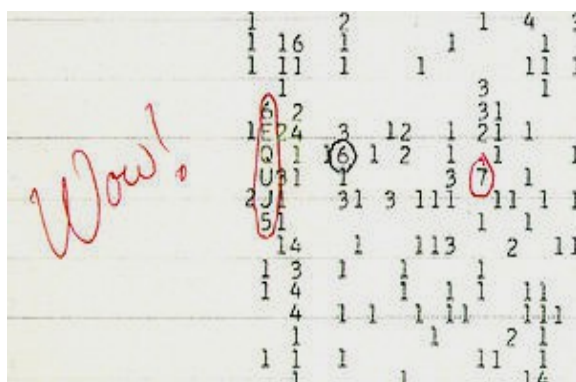 1 2 1 4 3
1 16 1 1 1
1 11 1 1 11 1
1 3 1
6 2 31
1 E 24 3 12 1 21 1
Q 1 1 6 1 2 1 1 1
Wow! U 31 1 3 7 1
2 J 1 31 3 111 11 1 1
5 1 1 1
14 1 113 2 11
1 3 1 1 1
1 4 1 1 1 11
4 1 1 1 11 111
1 1 2 1
1 1 1 11 1
1 1 14